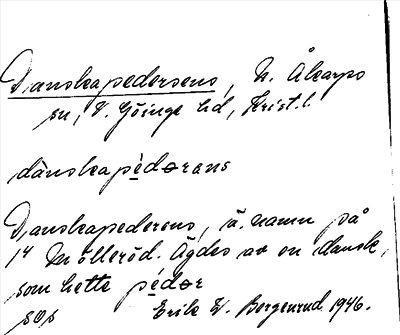 Danskapedersens, N. Åkarps
sn, V. Göinge hd, Krist. l.
dánska pèdərens
Danskapederens, ä. namn på
1⁄4 Mölleröd. Ägdes av en dansk,
som hette pédər
sɑs Erik W. Bergenrud 1946.